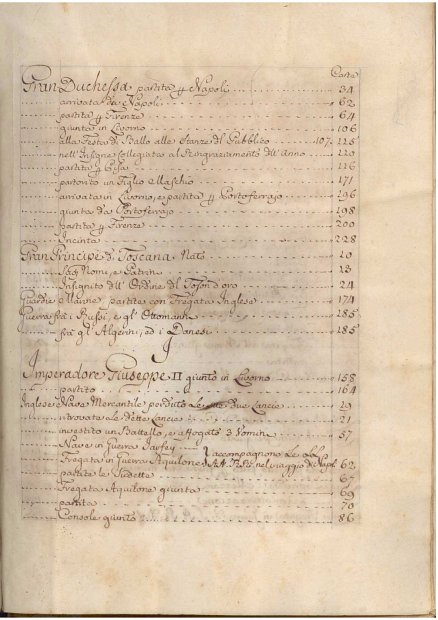 Carte
Gran Duchessa partita p Napoli 34
arrivata da Napoli 62
partita p Firenze 64
giunta in Livorno 106
alla Festa di Ballo alle Stanze del Pubblico 107. 125
nell'Insigne Collegiata al Ringraziamento dell'Anno 110
partita p 116
partorito un Figlio Maschio 171
arrivata in Livorno, e partita p Portoferrajo 196
giunta da Portoferrajo 198
partita p Firenze 200
Incinta 228
Gran Principe di Toscana Nato 10
Suoi Nomi, e Patrini 13
Insignito dell'Ordine del Toson d'oro 24
Guardie Marine, partite con Fregata Inglese 174
Guerra frà i Russi, e gl'Ottomanni 185
frà gl'Algerini, ed i Danesi 185
I
Imperadore Giuseppe II giunto in Livorno 158
partito 164
Inglese Nave Mercantile perduto le sue due Lancie 19
ritrovate le dette Lancie 21
investito un Battello, e affogati 3 Uomini 57
Nave in Guerra
Fregata in Guerra Aquilone accompagnono Le LL. AA. RR. nel viaggio di Napoli 62
partite le Sudette 67
Fregata Aquilone giunta 69
partita 70
Console giunto 86